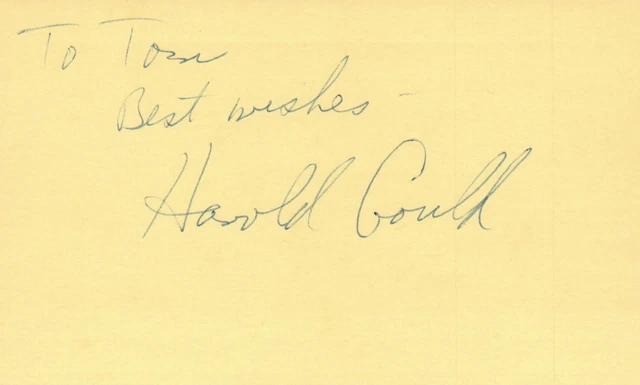 To Tom
Best wishes -
Harold Gould